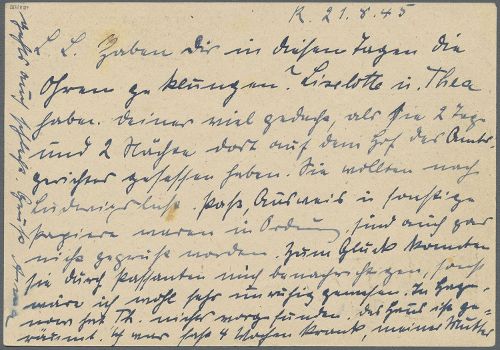 K. 21.8.45
L. L. Haben Dir in diesen Tagen die
Ohren geklungen? Liselotte u. Thea
haben Deiner viel gedacht, als sie 2 Tage
und 2 Nächte dort auf dem Hof des Amts-
gerichtes gesessen haben. Sie wollten nach
Ludwigslust. Paß Ausweis u sonstige
Papiere waren in Ordnung, sind auch gar
nicht geprüft worden. Zum Glück konnten
sie durch Passanten mich benachrichtigen, sonst
wäre ich wohl sehr unruhig gewesen. In Hage-
now hat Th. nichts vorgefunden. Das Haus ist ge-
räumt. Ich war fast 4 Wochen krank, meiner Mutter
auch Grüße